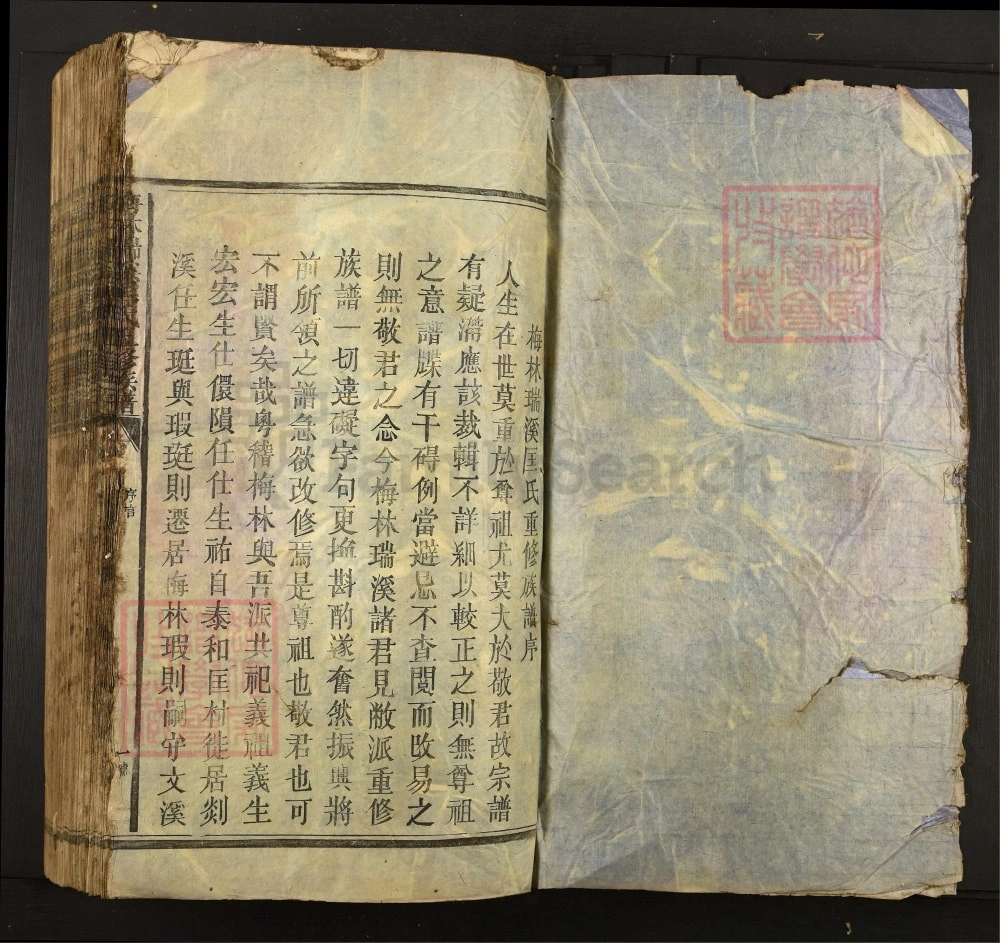 梅林瑞溪匡氏重修族譜序
人生在世莫重於尊祖尤莫大於敬君故宗譜
有疑滯應該裁輯不詳細以較正之則無尊祖
之意譜牒有干碍例當避忌不查閱而改易之
則無敬君之念今梅林瑞溪諸君見敝派重修
族譜一切違礙字句更換斟酌遂奮然振興將
前所領之譜急欲改修焉是尊祖也敬君也可
不謂賢矣哉粵稽梅林與吾派共祀義祖義生
宏宏生仕儇隕任仕生祐自泰和匡村徙居剡
溪任生珽與瑕珽則遷居梅林瑕則嗣守文溪
修族譜
序
一
Search